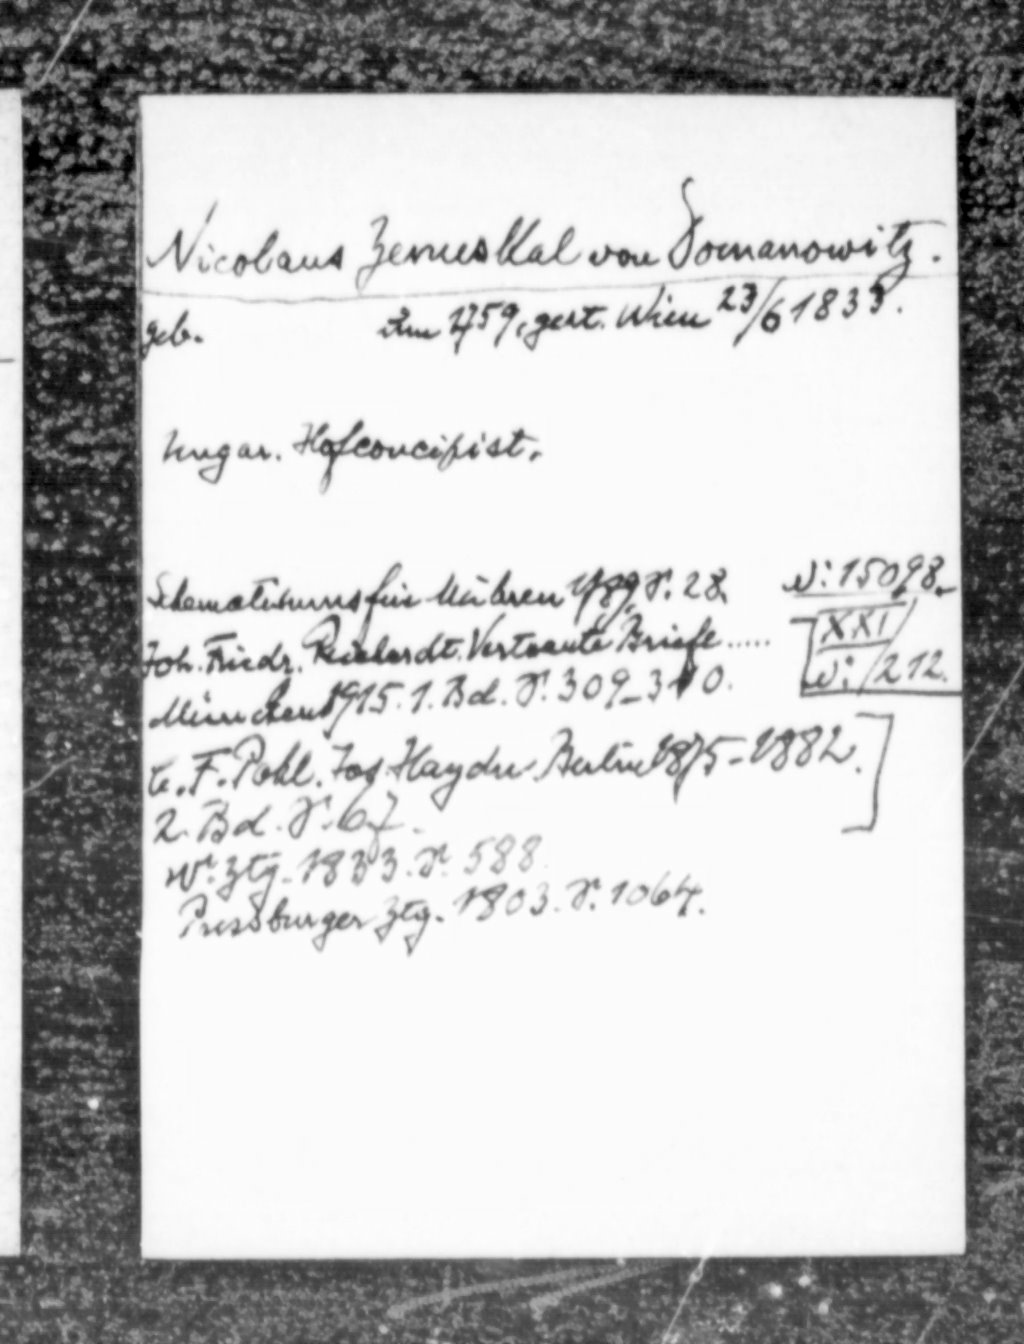 Nicolaus Zemeskal von Domanowitz.
geb. um 1759, gest. Wien 23/6 1833.
Ungar. Hofconcipist.
Schematismus für Mähren 1789. S. 28. N: 15098.
Joh. Friedr. Reichardt. Vertraute Briefe ...... XXI/
München 1915. 1. Bd. S. 309-310. N: 212.
C. F. Pohl. Jos. Haydn. Berlin 1875-1882.
2. Bd. S. 67.
Wr. Ztg. 1833. S. 588.
Pressburger Ztg. 1803. S. 1064.